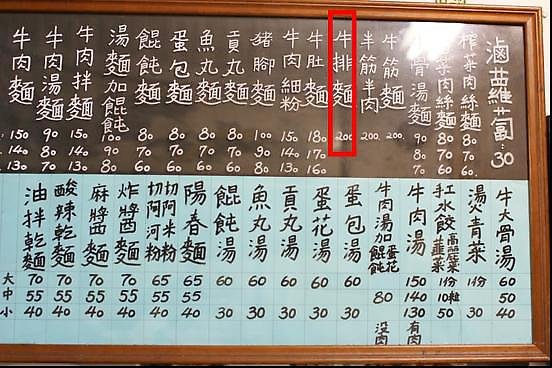 滷蘿蔔:30
榨菜肉絲麵 80 70 60
菜肉絲麵 80 70 60
骨湯麵 90 80 70
牛筋麵 200
半筋半肉 200
牛排麵 200
牛肚麵 180 170 160
牛肉細粉 150 140 130
豬腳麵 100 90 80
貢丸麵 80 70 60
魚丸麵 80 70 60
蛋包麵 80 70 60
餛飩麵 80 70 60
湯麵加餛飩 100 90 80
牛肉拌麵 150 140 130
牛肉湯麵 90 80 70
牛肉麵 150 140 130
牛大骨湯 60 50 40
燙青菜 1份 30
紅水餃 高麗菜 韮菜 1份 10粒 50
牛肉湯 150 140 130 有肉
牛肉湯加蛋花餛飩 80 沒肉
蛋包湯 60 30
蛋花湯 60 30
貢丸湯 60 30
魚丸湯 60 30
餛飩湯 60 30
陽春麵 65 55 40
切阿米粉 65 55 40
切阿河粉
炸醬麵 70 55 40
麻醬麵 70 55 40
酸辣乾麵 70 55 40
油拌乾麵 70 55 40
大 中 小